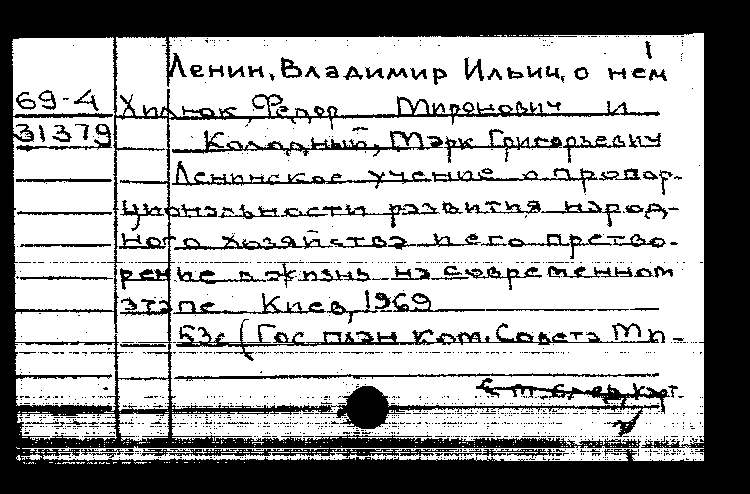 1
Ленин, Владимир Ильич, о нем
69-4 Хилюк, Федор Миронович и
31379 Колодный, Марк Григорьевич
Ленинское учение о пропор-
циональности развития народ-
ного хозяйства и его претво-
рение в жизнь на современном
этапе. Киев, 1969
53с (Гос план ком. Совета Ми-
см след. карт.